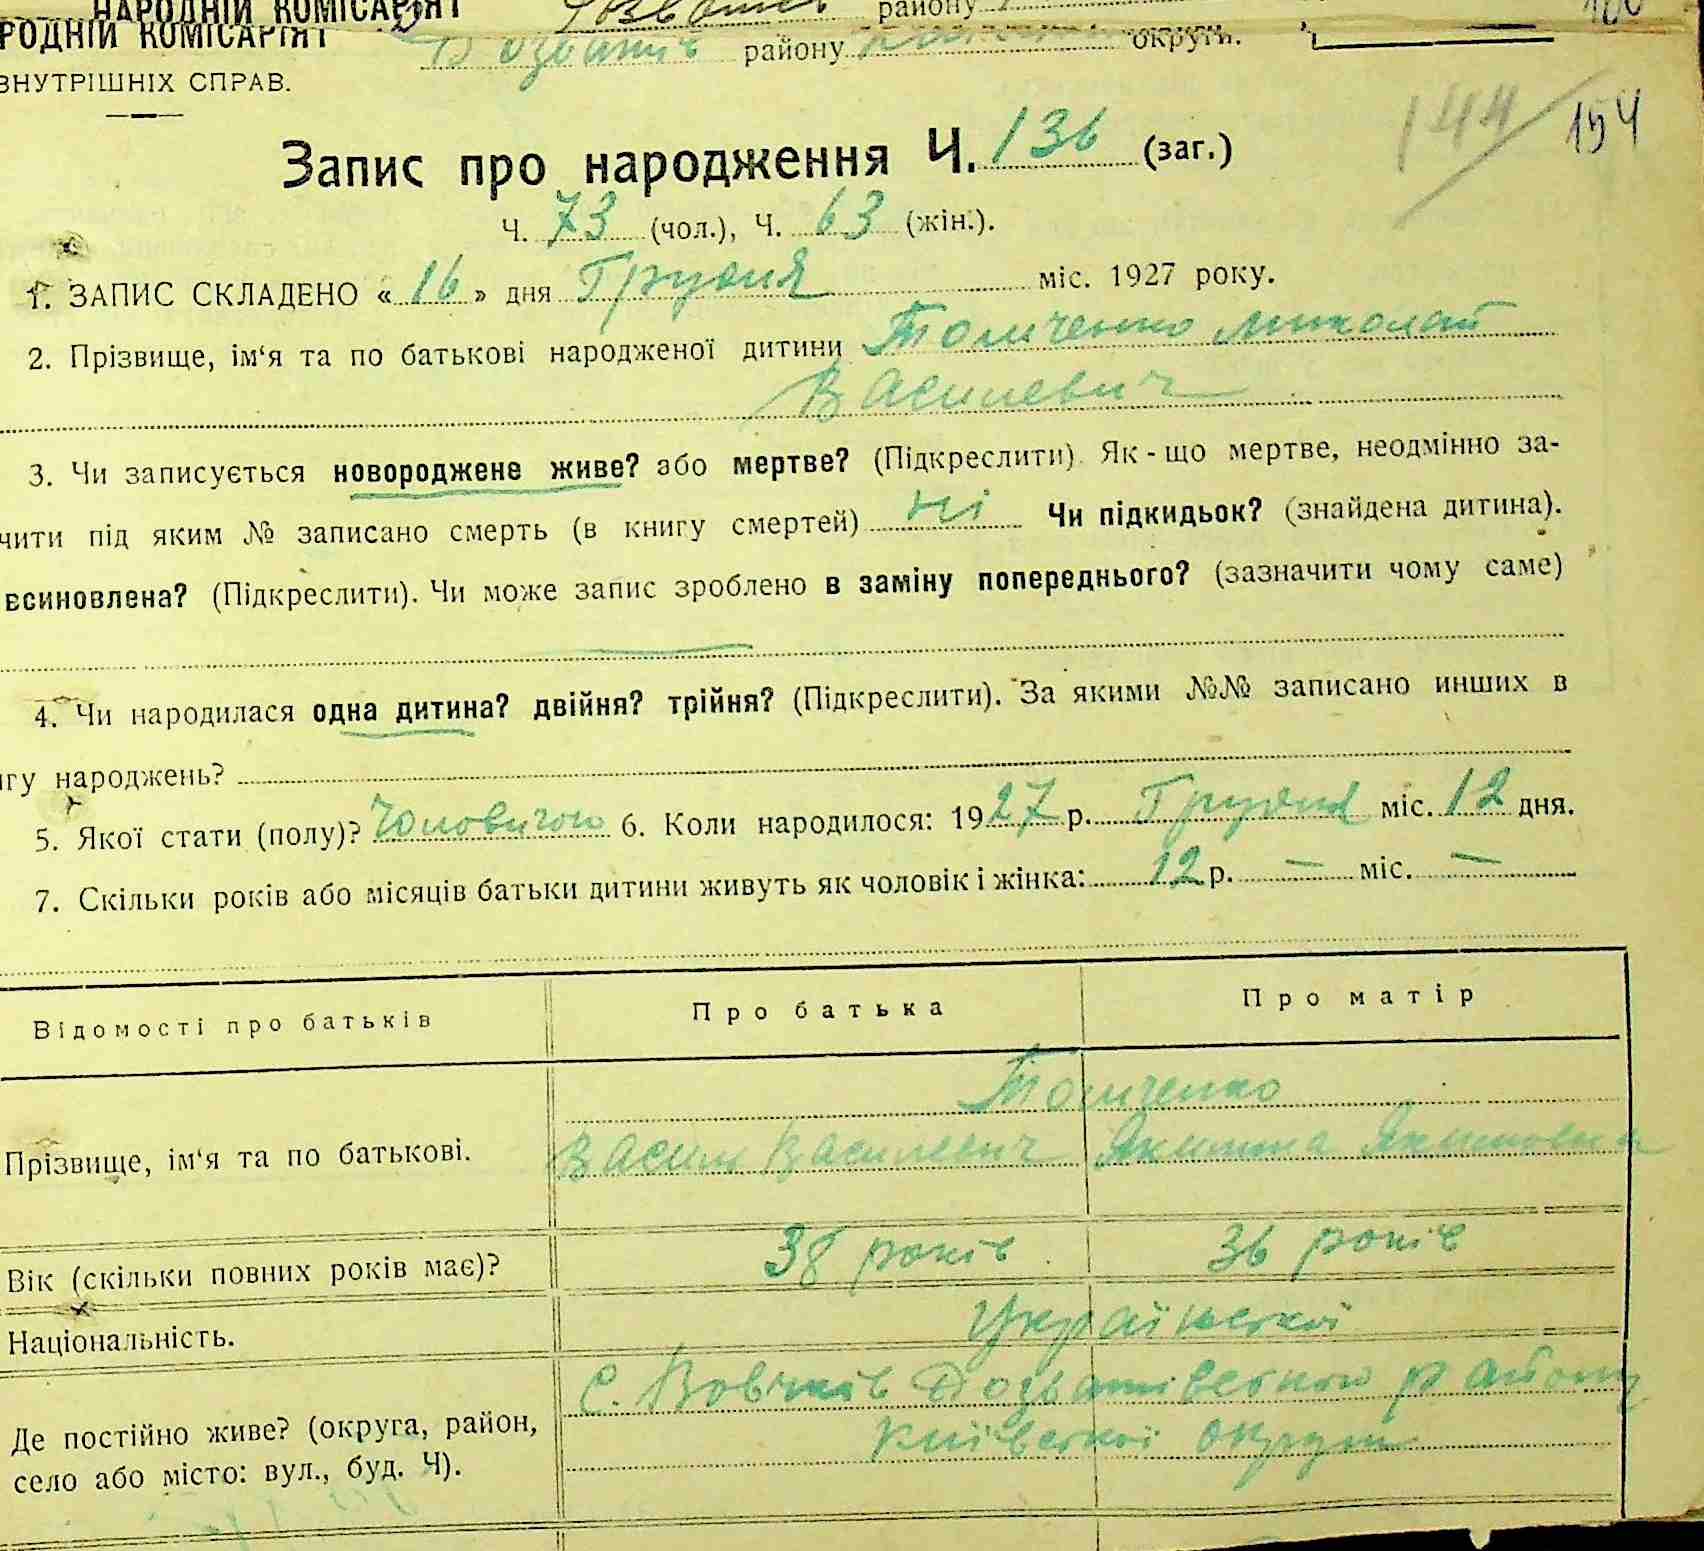 НАРОДНІЙ КОМІСАРІЯТ району
РОДНІЙ КОМІСАРІЯТ району округи.
ВНУТРІШНІХ СПРАВ.
144 154
Запис про народження Ч. 136 (заг.)
Ч. 73 (чол.), Ч. 63 (жін.).
1. ЗАПИС СКЛАДЕНО « 16 » дня Грудня міс. 1927 року.
2. Прізвище, ім‘я та по батькові народженої дитини Толченко Миколай
Василевич
3. Чи записується новороджене живе? або мертве? (Підкреслити). Як-що мертве, неодмінно за-
чити під яким № записано смерть (в книгу смертей) Ні Чи підкидьок? (знайдена дитина).
всиновлена? (Підкреслити). Чи може запис зроблено в заміну попереднього? (зазначити чому саме)
4. Чи народилася одна дитина? двійня? трійня? (Підкреслити). За якими №№ записано инших в
игу народжень?
5. Якої стати (полу)? Чоловічого 6. Коли народилося: 1927 р. Грудня міс. 12 дня.
7. Скільки років або місяців батьки дитини живуть як чоловік і жінка: 12 р. — міс. —
Відомості про батьків Про батька Про матір
Толченко
Прізвище, ім‘я та по батькові. Василь Василевич
Вік (скільки повних років має)? 38 років 36 років
Національність. Української
Де постійно живе? (округа, район, С. Вовчків району
село або місто: вул., буд. Ч). Київської округи